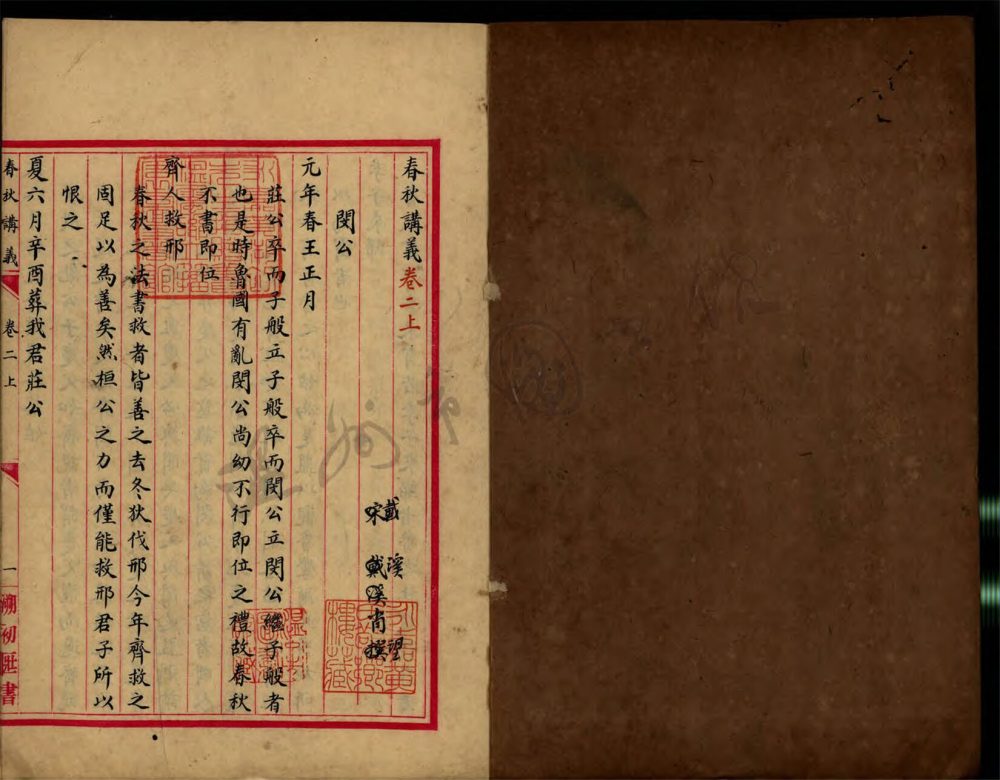 春秋講義卷二上
宋 戴溪 撰
閔公
元年春王正月
莊公卒而子般立子般卒而閔公立閔公繼子般者
也是時魯國有亂閔公尚幼不行即位之禮故春秋
不書即位
齊人救邢
春秋之法書救者皆善之去冬狄伐邢今年齊救之
固足以為善矣然桓公之力而僅能救邢君子所以
恨之
夏六月辛酉葬我君莊公
春秋講義 卷二上 一